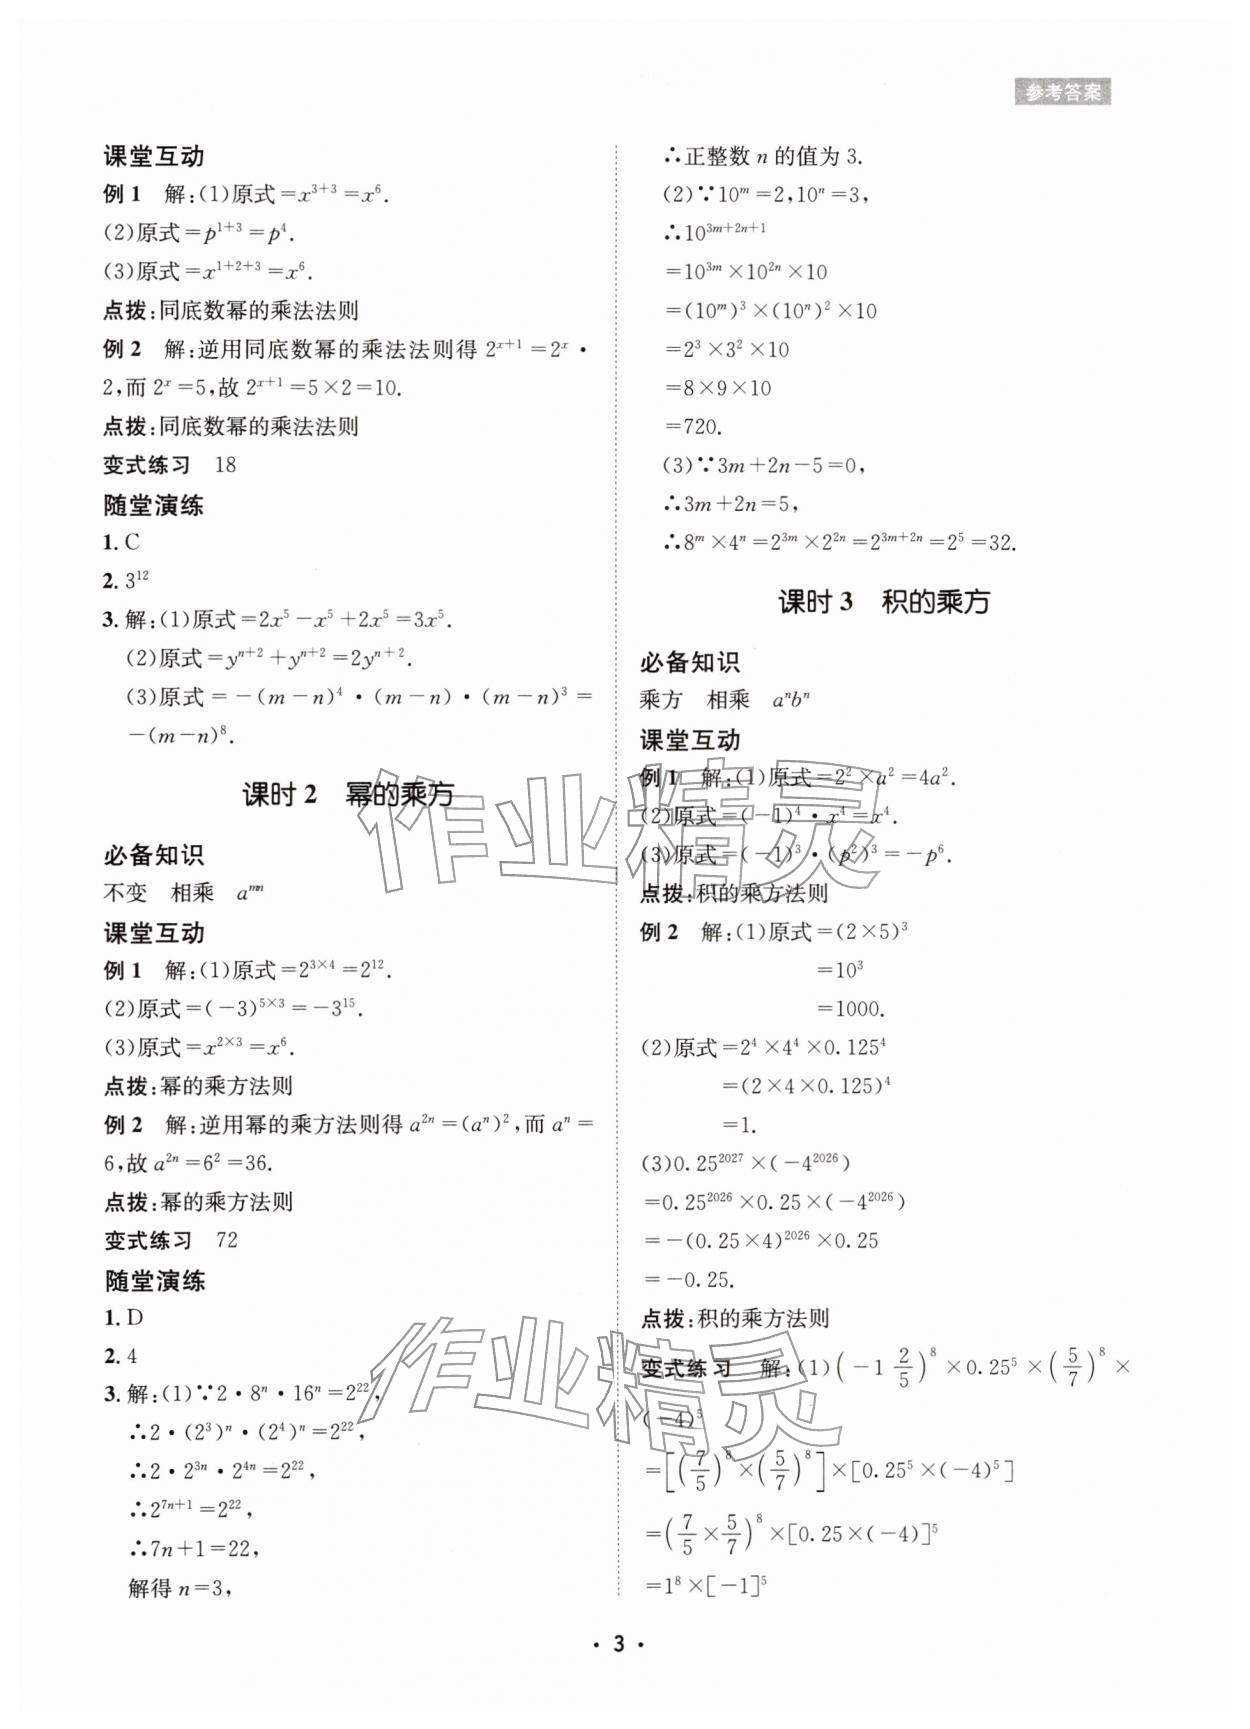 参考答案
课堂互动
例 1　解:(1)原式=x³⁺³=x⁶.
(2)原式=p¹⁺³=p⁴.
(3)原式=x¹⁺²⁺³=x⁶.
点拨:同底数幂的乘法法则
例 2　解:逆用同底数幂的乘法法则得 2ˣ⁺¹=2ˣ·
2,而 2ˣ=5,故 2ˣ⁺¹=5×2=10.
点拨:同底数幂的乘法法则
变式练习　18
随堂演练
1. C
2. 3¹²
3. 解:(1)原式=2x⁵-x⁵+2x⁵=3x⁵.
(2)原式=yⁿ⁺²+yⁿ⁺²=2yⁿ⁺².
(3)原式=-(m-n)⁴·(m-n)·(m-n)³=
-(m-n)⁸.
课时 2　幂的乘方
必备知识
不变　相乘　aᵐⁿ
课堂互动
例 1　解:(1)原式=2³ˣ⁴=2¹².
(2)原式=(-3)⁵ˣ³=-3¹⁵.
(3)原式=x²ˣ³=x⁶.
点拨:幂的乘方法则
例 2　解:逆用幂的乘方法则得 a²ⁿ=(aⁿ)²,而 aⁿ=
6,故 a²ⁿ=6²=36.
点拨:幂的乘方法则
变式练习　72
随堂演练
1. D
2. 4
3. 解:(1)∵2·8ⁿ·16ⁿ=2²²,
∴2·(2³)ⁿ·(2⁴)ⁿ=2²²,
∴2·2³ⁿ·2⁴ⁿ=2²²,
∴2⁷ⁿ⁺¹=2²²,
∴7n+1=22,
解得 n=3,
∴正整数 n 的值为 3.
(2)∵10ᵐ=2,10ⁿ=3,
∴10³ᵐ⁺²ⁿ⁺¹
=10³ᵐ×10²ⁿ×10
=(10ᵐ)³×(10ⁿ)²×10
=2³×3²×10
=8×9×10
=720.
(3)∵3m+2n-5=0,
∴3m+2n=5,
∴8ᵐ×4ⁿ=2³ᵐ×2²ⁿ=2³ᵐ⁺²ⁿ=2⁵=32.
课时 3　积的乘方
必备知识
乘方　相乘　aⁿbⁿ
课堂互动
例 1　解:(1)原式=2²×a²=4a².
(2)原式=(-1)⁴·x⁴=x⁴.
(3)原式=(-1)³·(p²)³=-p⁶.
点拨:积的乘方法则
例 2　解:(1)原式=(2×5)³
=10³
=1000.
(2)原式=2⁴×4⁴×0.125⁴
=(2×4×0.125)⁴
=1.
(3)0.25²⁰²⁷×(-4²⁰²⁶)
=0.25²⁰²⁶×0.25×(-4²⁰²⁶)
=-(0.25×4)²⁰²⁶×0.25
=-0.25.
点拨:积的乘方法则
变式练习　解:(1)(-1 2/5)⁸×0.25⁵×(5/7)⁸×
(-4)⁵
=[(7/5)⁸×(5/7)⁸]×[0.25⁵×(-4)⁵]
=(7/5×5/7)⁸×[0.25×(-4)]⁵
=1⁸×[-1]⁵
· 3 ·
作业精灵
作业精灵